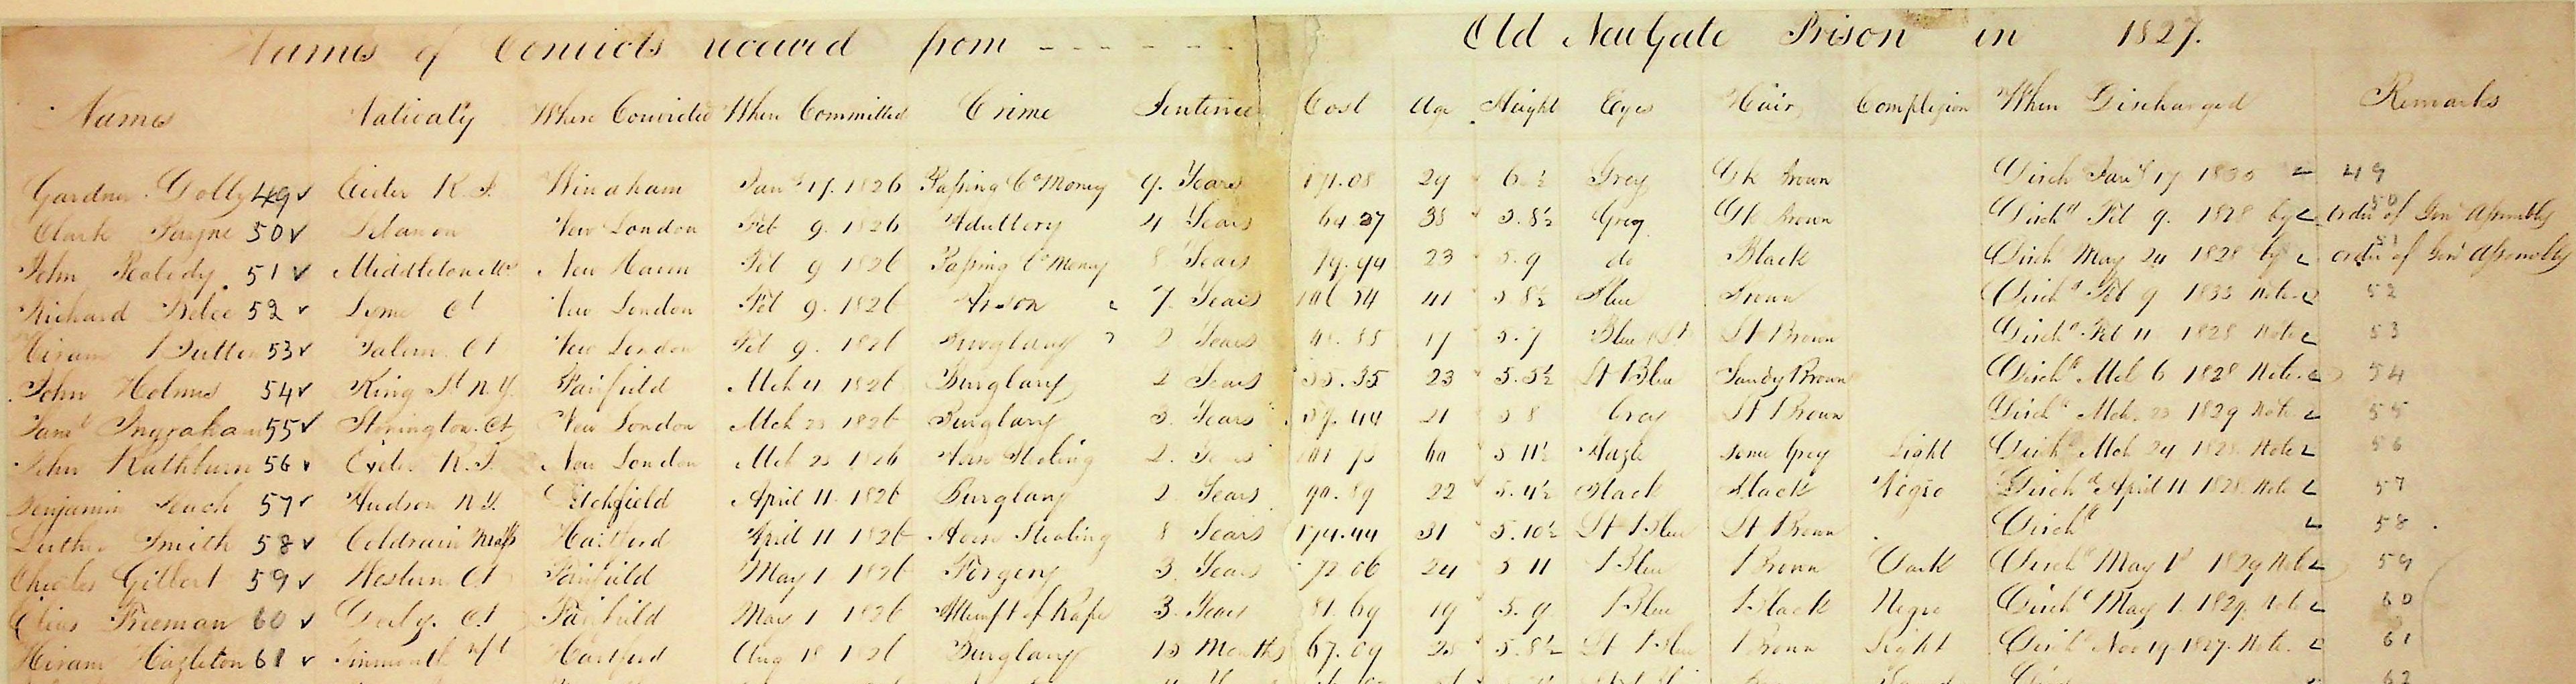 Names of Convicts received from - - - - - - - Old NewGate Prison in 1827.
Names Nativaty Where Convicted When Committed Crime Sentence Cost Age Height Eyes Hair Complexion When Discharged Remarks
Gardner Dolly 49 Exeter R.I. Windham Jany 17. 1826 Passing Co Money 9. Years 171.08 29 6 ½ Grey Dk Brown Disch Jany 17 1835 49
Clark Payne 50 Lebanon New London Feb 9. 1826 Adultery 4 Years 64.27 38 5.8½ Grey Dk Brown Dischd Feb 9. 1828 by order of Genl Assembly 50
John Peabedy 51 Middleton Ms New Haven Feb 9 1826 Passing Co Money 8 Years 79.94 23 5.9 do Black Dischd May 24 1828 by order of Genl Assembly 51
Richard 52 Lyme Ct New London Feb 9. 1826 Arson 7. Years 41 5 8½ Blue Brown Dischd Feb 9 1833 Note 52
Hiram Dutton 53 Salem. Ct New London Feb 9. 1826 Burglary 2 Years 17 5.7 Blue Lt Brown Dischd Feb 11 1828 Note 53
John Holmes 54 King St N.Y. Fairfield Mch 4 1826 Burglary 2 Years 35.35 23 5.5½ Lt Blue Sandy Brown Dischd Mch 6 1828 Note 54
Saml Ingraham 55 Stonington. Ct New London Mch 23 1826 Burglary 3. Years 59.44 21 5 8 Grey Lt Brown Dischd Mch. 23 1829 Note 55
John Rathburn 56 Exeter R.I. New London Mch 23 1826 Horse Stealing 2. Years 60 5 11½ Hazle some Grey Light Dischd Mch 24 1828 Note 56
Benjamin 57 Hudson N.Y. Litchfield April 11. 1826 Burglary 2 Years 90.89 22 5.4½ Black Black Negro Dischd April 11 1828 Note 57
Luther Smith 58 Coldrain Mass Hartford April 11 1826 Horse Stealing 8 Years 174.44 31 5.10½ Lt Blue Lt Brown Dischd 58
Charles Gilbert 59 Western Ct Fairfield May 1 1826 Forgery 3. Years 72 06 24 5 11 Blue Brown Dark Dischd May 1st 1829 Note 59
Elias Freeman 60 Derby. Ct Fairfield May 1 1826 Attempt of Rape 3. Years 81.69 19 5.9 Blue Black Negro Dischd May 1. 1829. Note 60
Hiram Hazleton 61 Tinmouth Vt Hartford Aug 18 1826 Burglary 15 Months 67.09 25 5.8½ Lt Blue Brown Light Dischd Nov 19 1827. Note. 61
62